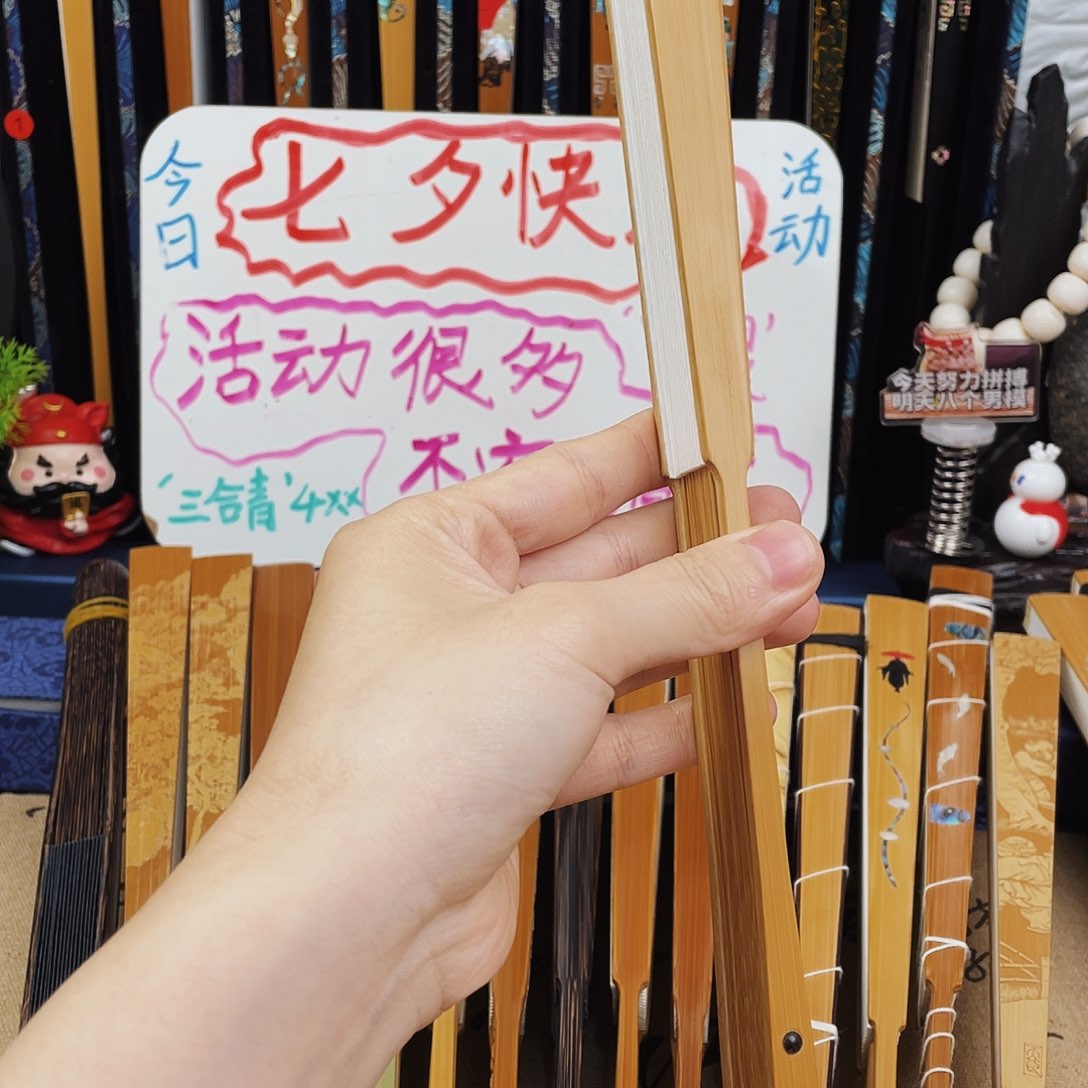 今日
七夕快
活动
活动很多
'三合青'4xx
今天努力拼搏
明天八个男模
1